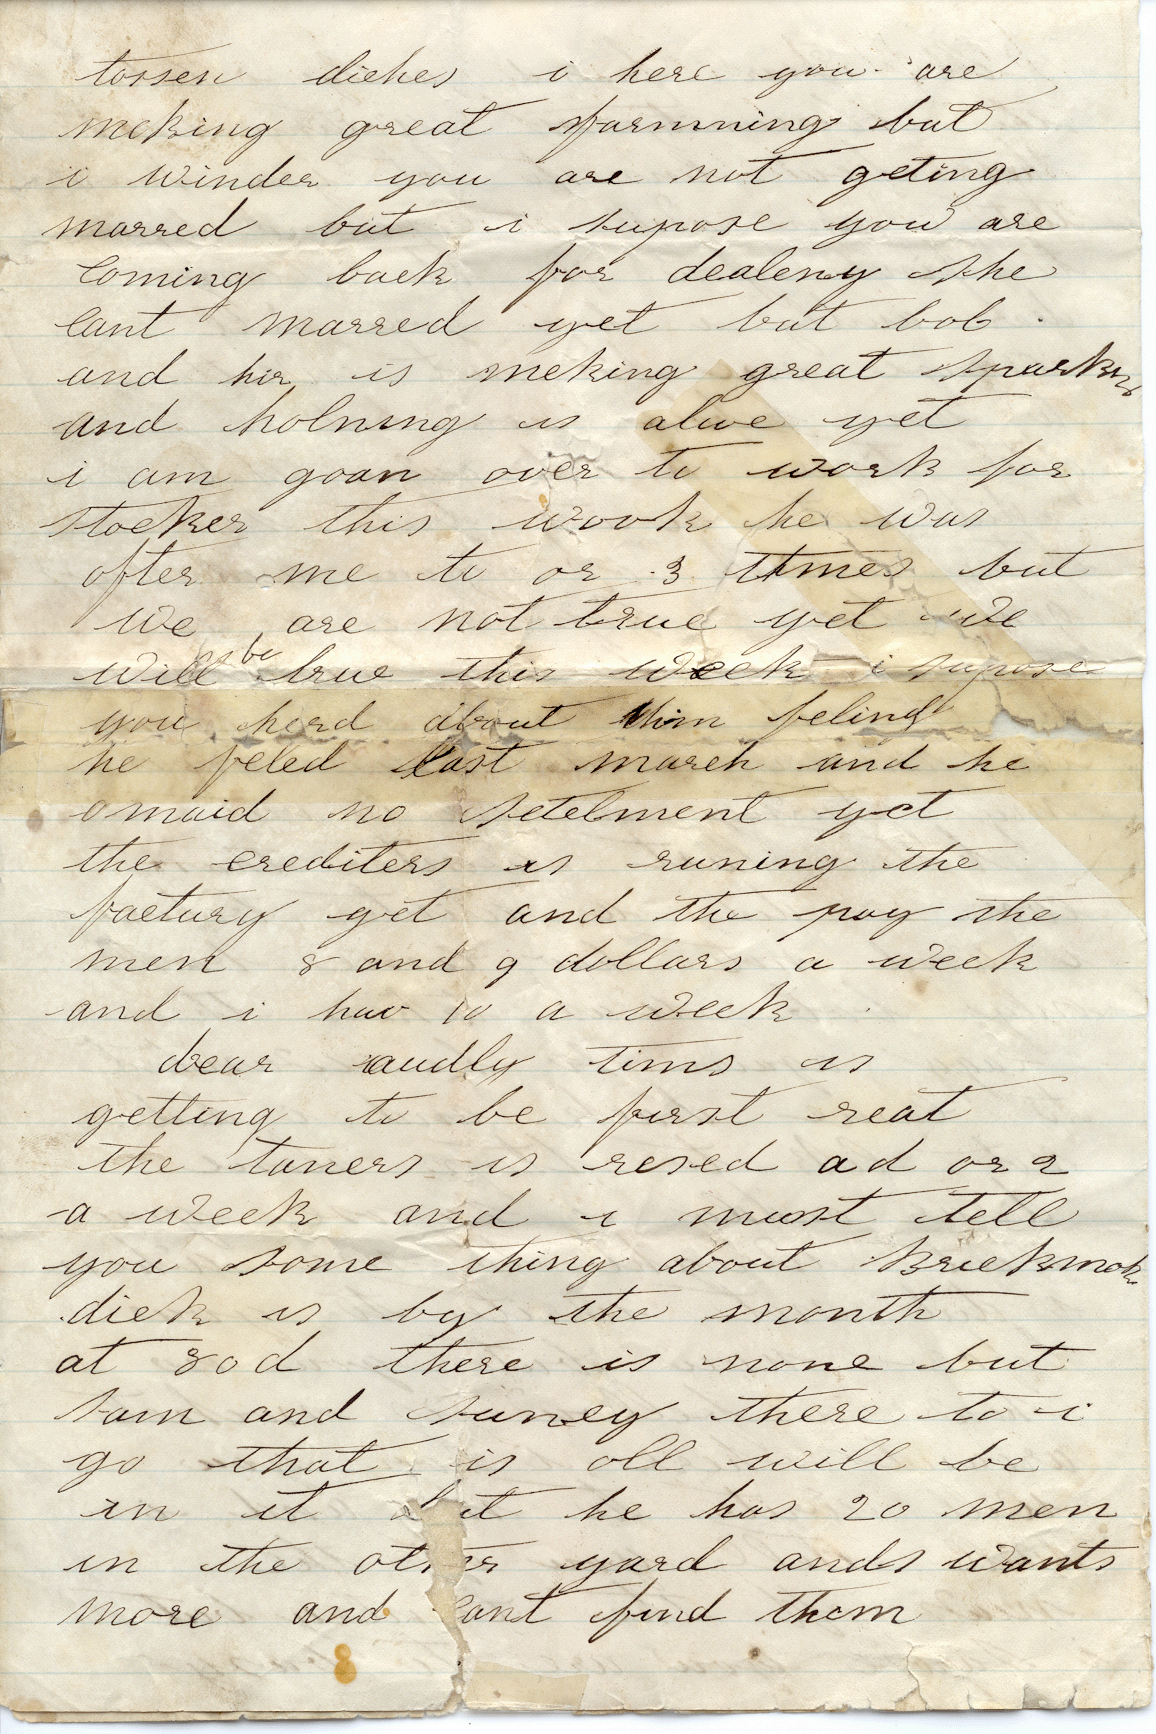 tossen diches i here you are
meking great farmning but
i winder you are not geting
marred but i supose you are
coming back for dealeny she
cant marred yet but bob
and hir is meking great sparkin
and holning is alive yet
i am goan over to work for
stocker this wook he was
after me to or 3 times but
we are not true yet we
will be true this week i supose
you herd about him feling
he feled last march and he
maid no setelment yet
the crediters is runing the
factury yet and the pay the
men 8 and 9 dollars a week
and i hav 10 a week
dear audly tims is
getting to be first reat
the taners is resed a d or 2
a week and i must tell
you some thing about Brickmok
dick is by the month
at 80 d there is none but
sam and suney there to i
go that is oll will be
in it but he has 20 men
in the other yard ands wants
more and cant find them